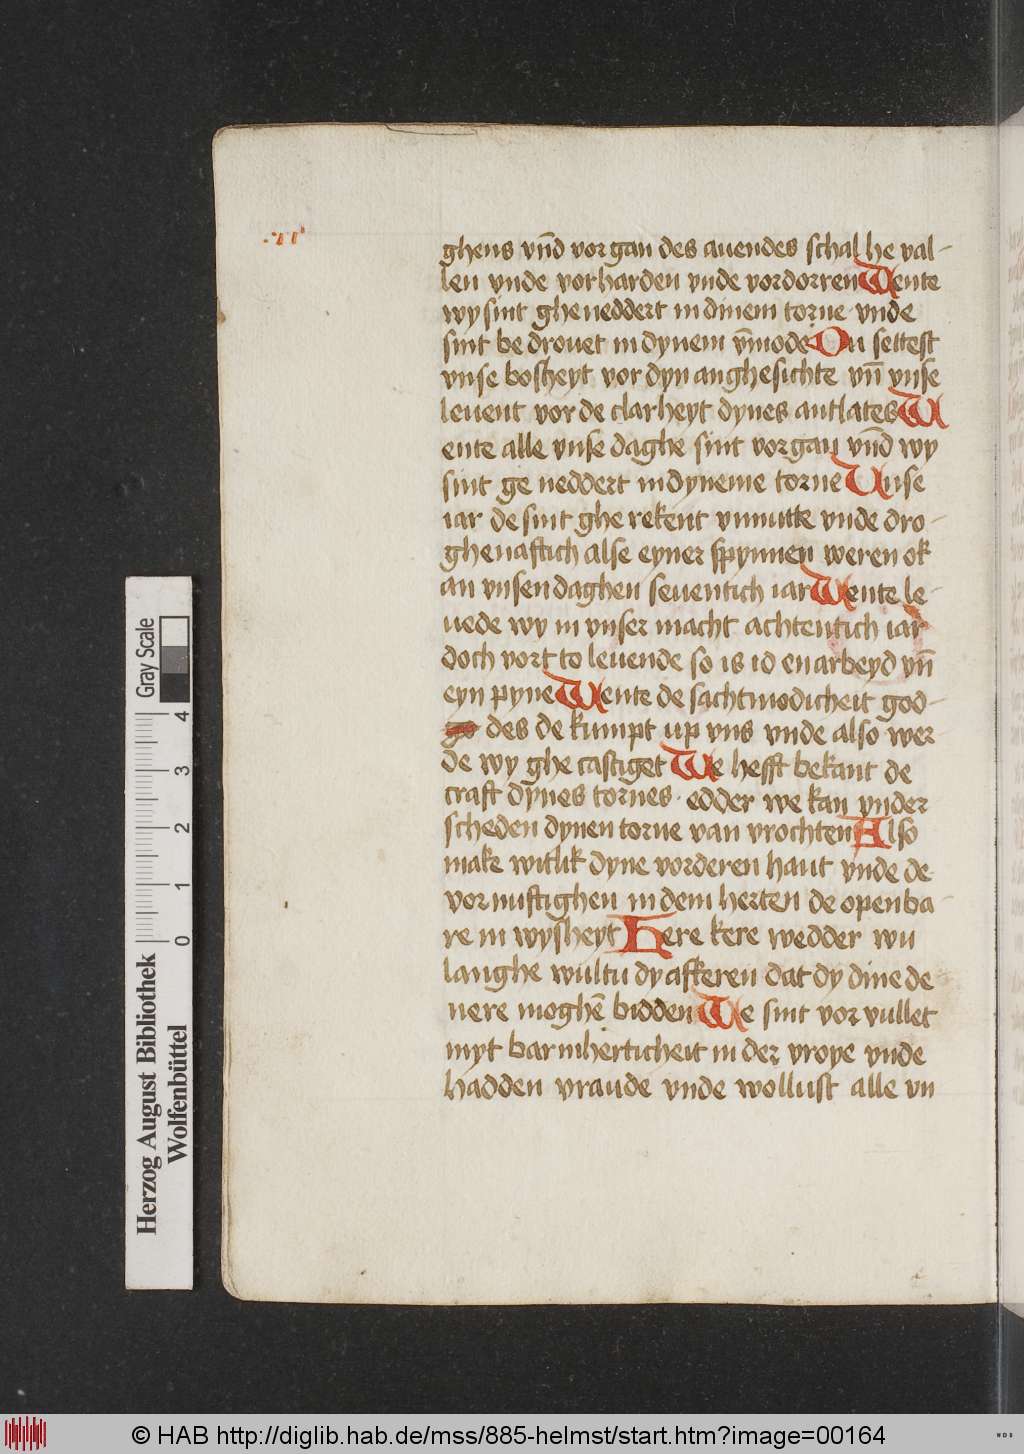 ghens vn̄d vorgan des auendes schal he val-
len vnde vorharden vnde vordorren Wente
wy sint gheneddert in dinem torne vnde
sint bedrouet in dynem v̄mode Du settest
vnse bosheyt vor dyn anghesichte vn̄ vnse
leuent vor de clarheyt dynes antlates W
ente alle vnse daghe sint vorgan vn̄d wy
sint geneddert in dyneme torne Vnse
iar de sint gherekent vnnutte vnde dro-
ghenaftich alse eyner spynnen weren ok
an vnsen daghen seuentich iar Wente le-
uede wy in vnser macht achtentich iar
doch vort to leuende so is id en arbeyd vn̄
eyn pyne Wente de sachtmodicheit god-
des de kumpt up vns vnde also wer-
de wy ghecastiget We hefft bekant de
craft dynes tornes. edder we kan vnder
scheden dynen torne van vrochten Also
make witlik dyne vorderen hant vnde de
vornuftighen in dem herten de openba-
re in wysheyt Here kere wedder wu
langhe wultu dy afkeren dat dy dine de-
nere moghē bidden We sint vorvullet
myt barmherticheit in der vroye vnde
hadden vraude vnde wollust alle vn
Herzog August Bibliothek
Wolfenbüttel
0 1 2 3 4
Gray Scale
© HAB http://diglib.hab.de/mss/885-helmst/start.htm?image=00164